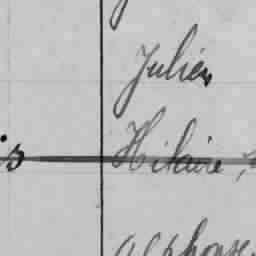 Julien
Hilaire,
alphonse